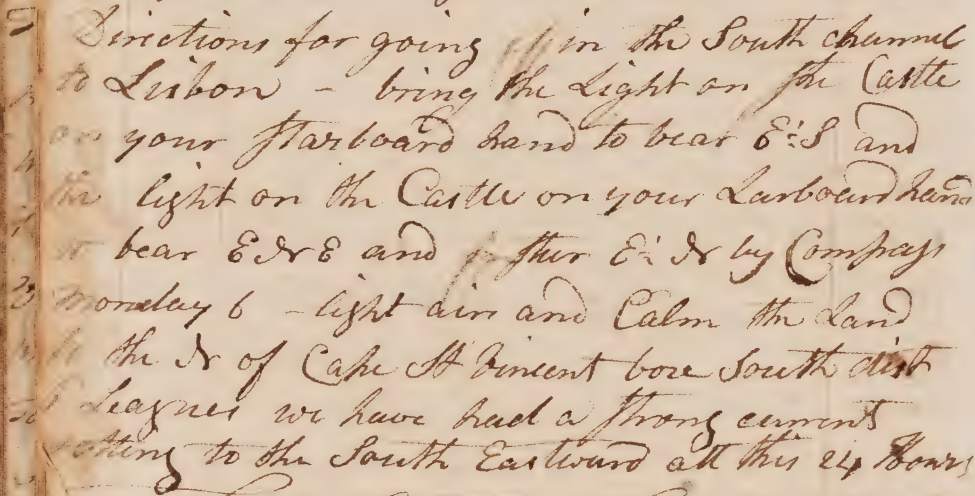 Directions for going in the South channel
to Lisbon - bring the Light on the Castle
on your starboard hand to bear E:S and
the light on the Castle on your Larboard hand
to bear ENE and steer E:N by Compass
Monday 6 - light airs and Calm the Land
to the N of Cape St Vincent bore South dist
Leagues we have had a strong current
setting to the South Eastward all this 24 Hours